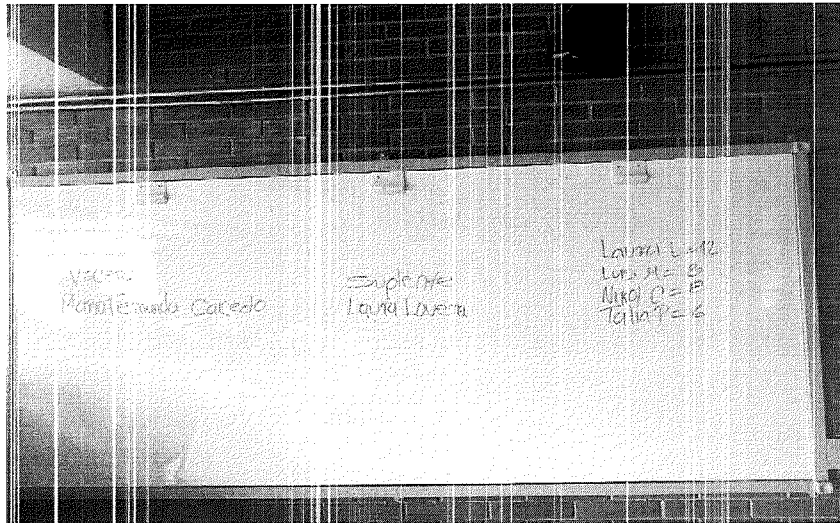 Maria Fernanda Caicedo
Suplente
Laura Lovera
Laura L = 12
Luna M = 8
Nikol C = 
Talin P = 6